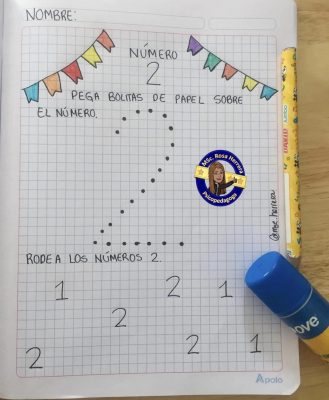 NOMBRE:
NÚMERO
2
PEGA BOLITAS DE PAPEL SOBRE
EL NÚMERO.
MSc. Rosa Herrera
Psicopedagoga
RODEA LOS NÚMEROS 2.
1 2 1
2
2 2 1
Apolo
ove